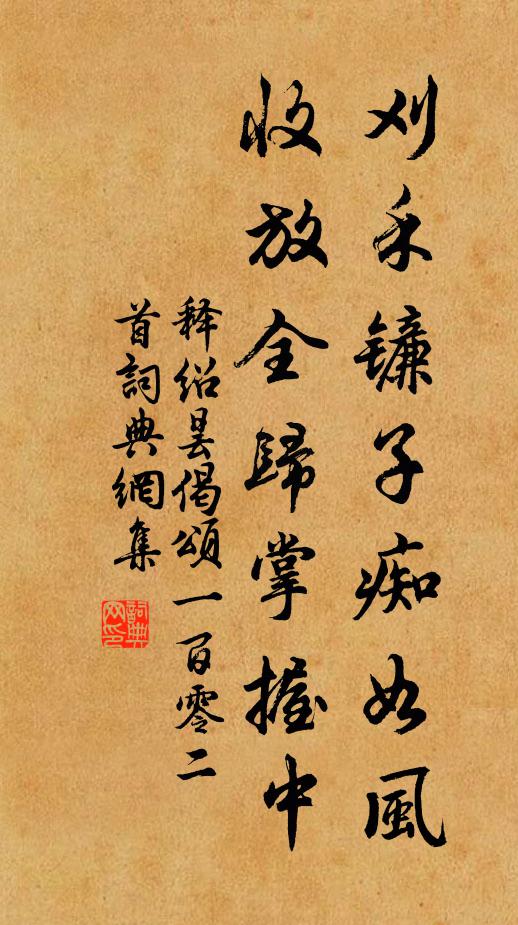 刈禾镰子痴如風
收放全歸掌握中
释紹昙偈頌一百零二
首詞典網集
詞典网印